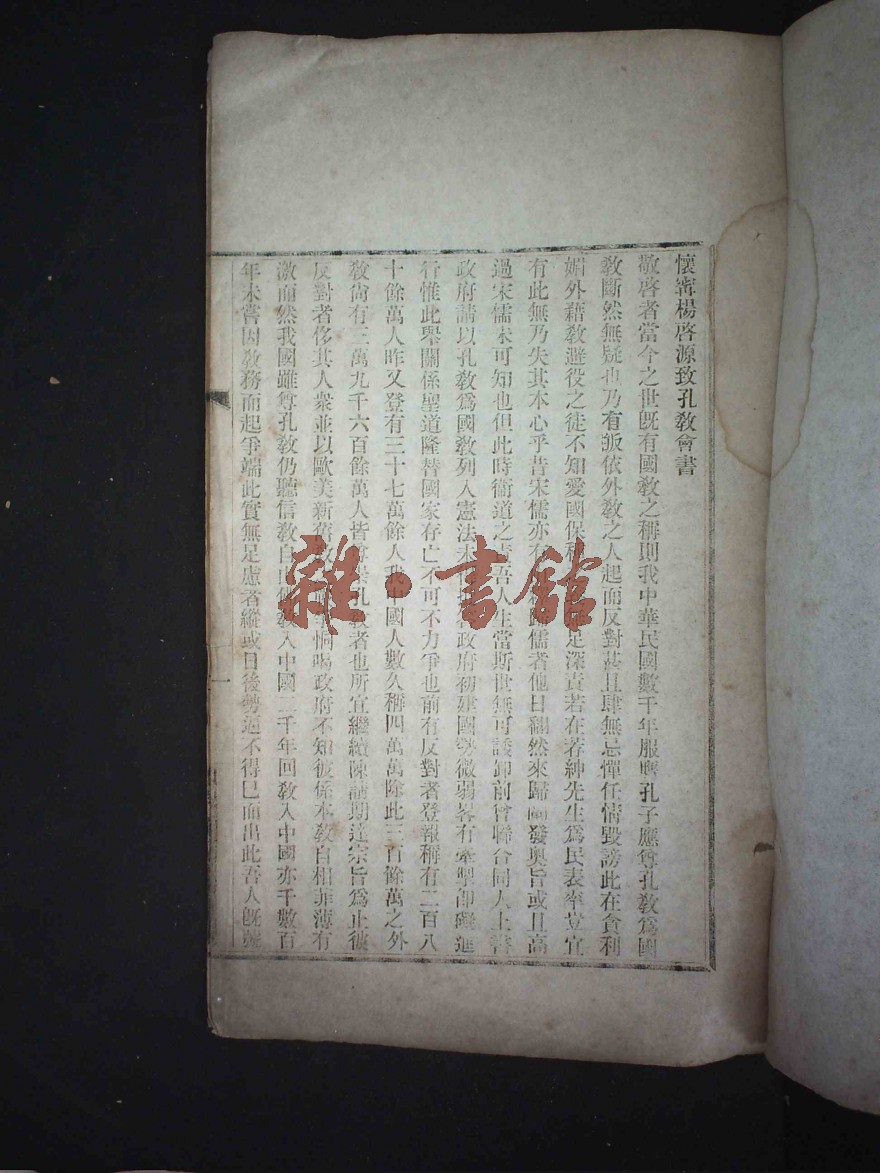 懷甯楊啓源致孔敎會書
敬啓者當今之世旣有國敎之稱則我中華民國數千年服膺孔子應尊孔敎爲國
敎斷然無疑也乃有皈依外敎之人起而反對甚且肆無忌憚任情毀謗此在貪利
媚外藉敎避役之徒不知愛國保種足深責若在荐紳先生爲民表率豈宜
有此無乃失其本心乎昔宋儒亦有儒者他日翻然來歸闡發奧旨或且高
過宋儒未可知也但此時衞道之責吾人生當斯世無可諉卸前曾聯合同人上書
政府請以孔敎爲國敎列入憲法未政府初建國勢微弱畧有牽掣卽礙進
行惟此舉關係聖道隆替國家存亡不可不力爭也前有反對者登報稱有二百八
十餘萬人昨又登有三十七萬餘人我中國人數久稱四萬萬除此三百餘萬之外
敎尙有三萬九千六百餘萬人皆尊崇孔敎者也所宜繼續陳請期達宗旨爲止彼
反對者侈其人衆並以歐美新舊敎爭恫喝政府不知彼係本敎自相菲薄有
激而然我國雖尊孔敎仍聽信敎自由佛敎入中國二千年回敎入中國亦千數百
年未嘗因敎務而起爭端此實無足慮者縱或日後勢逼不得已而出此吾人旣
一
雜·書館